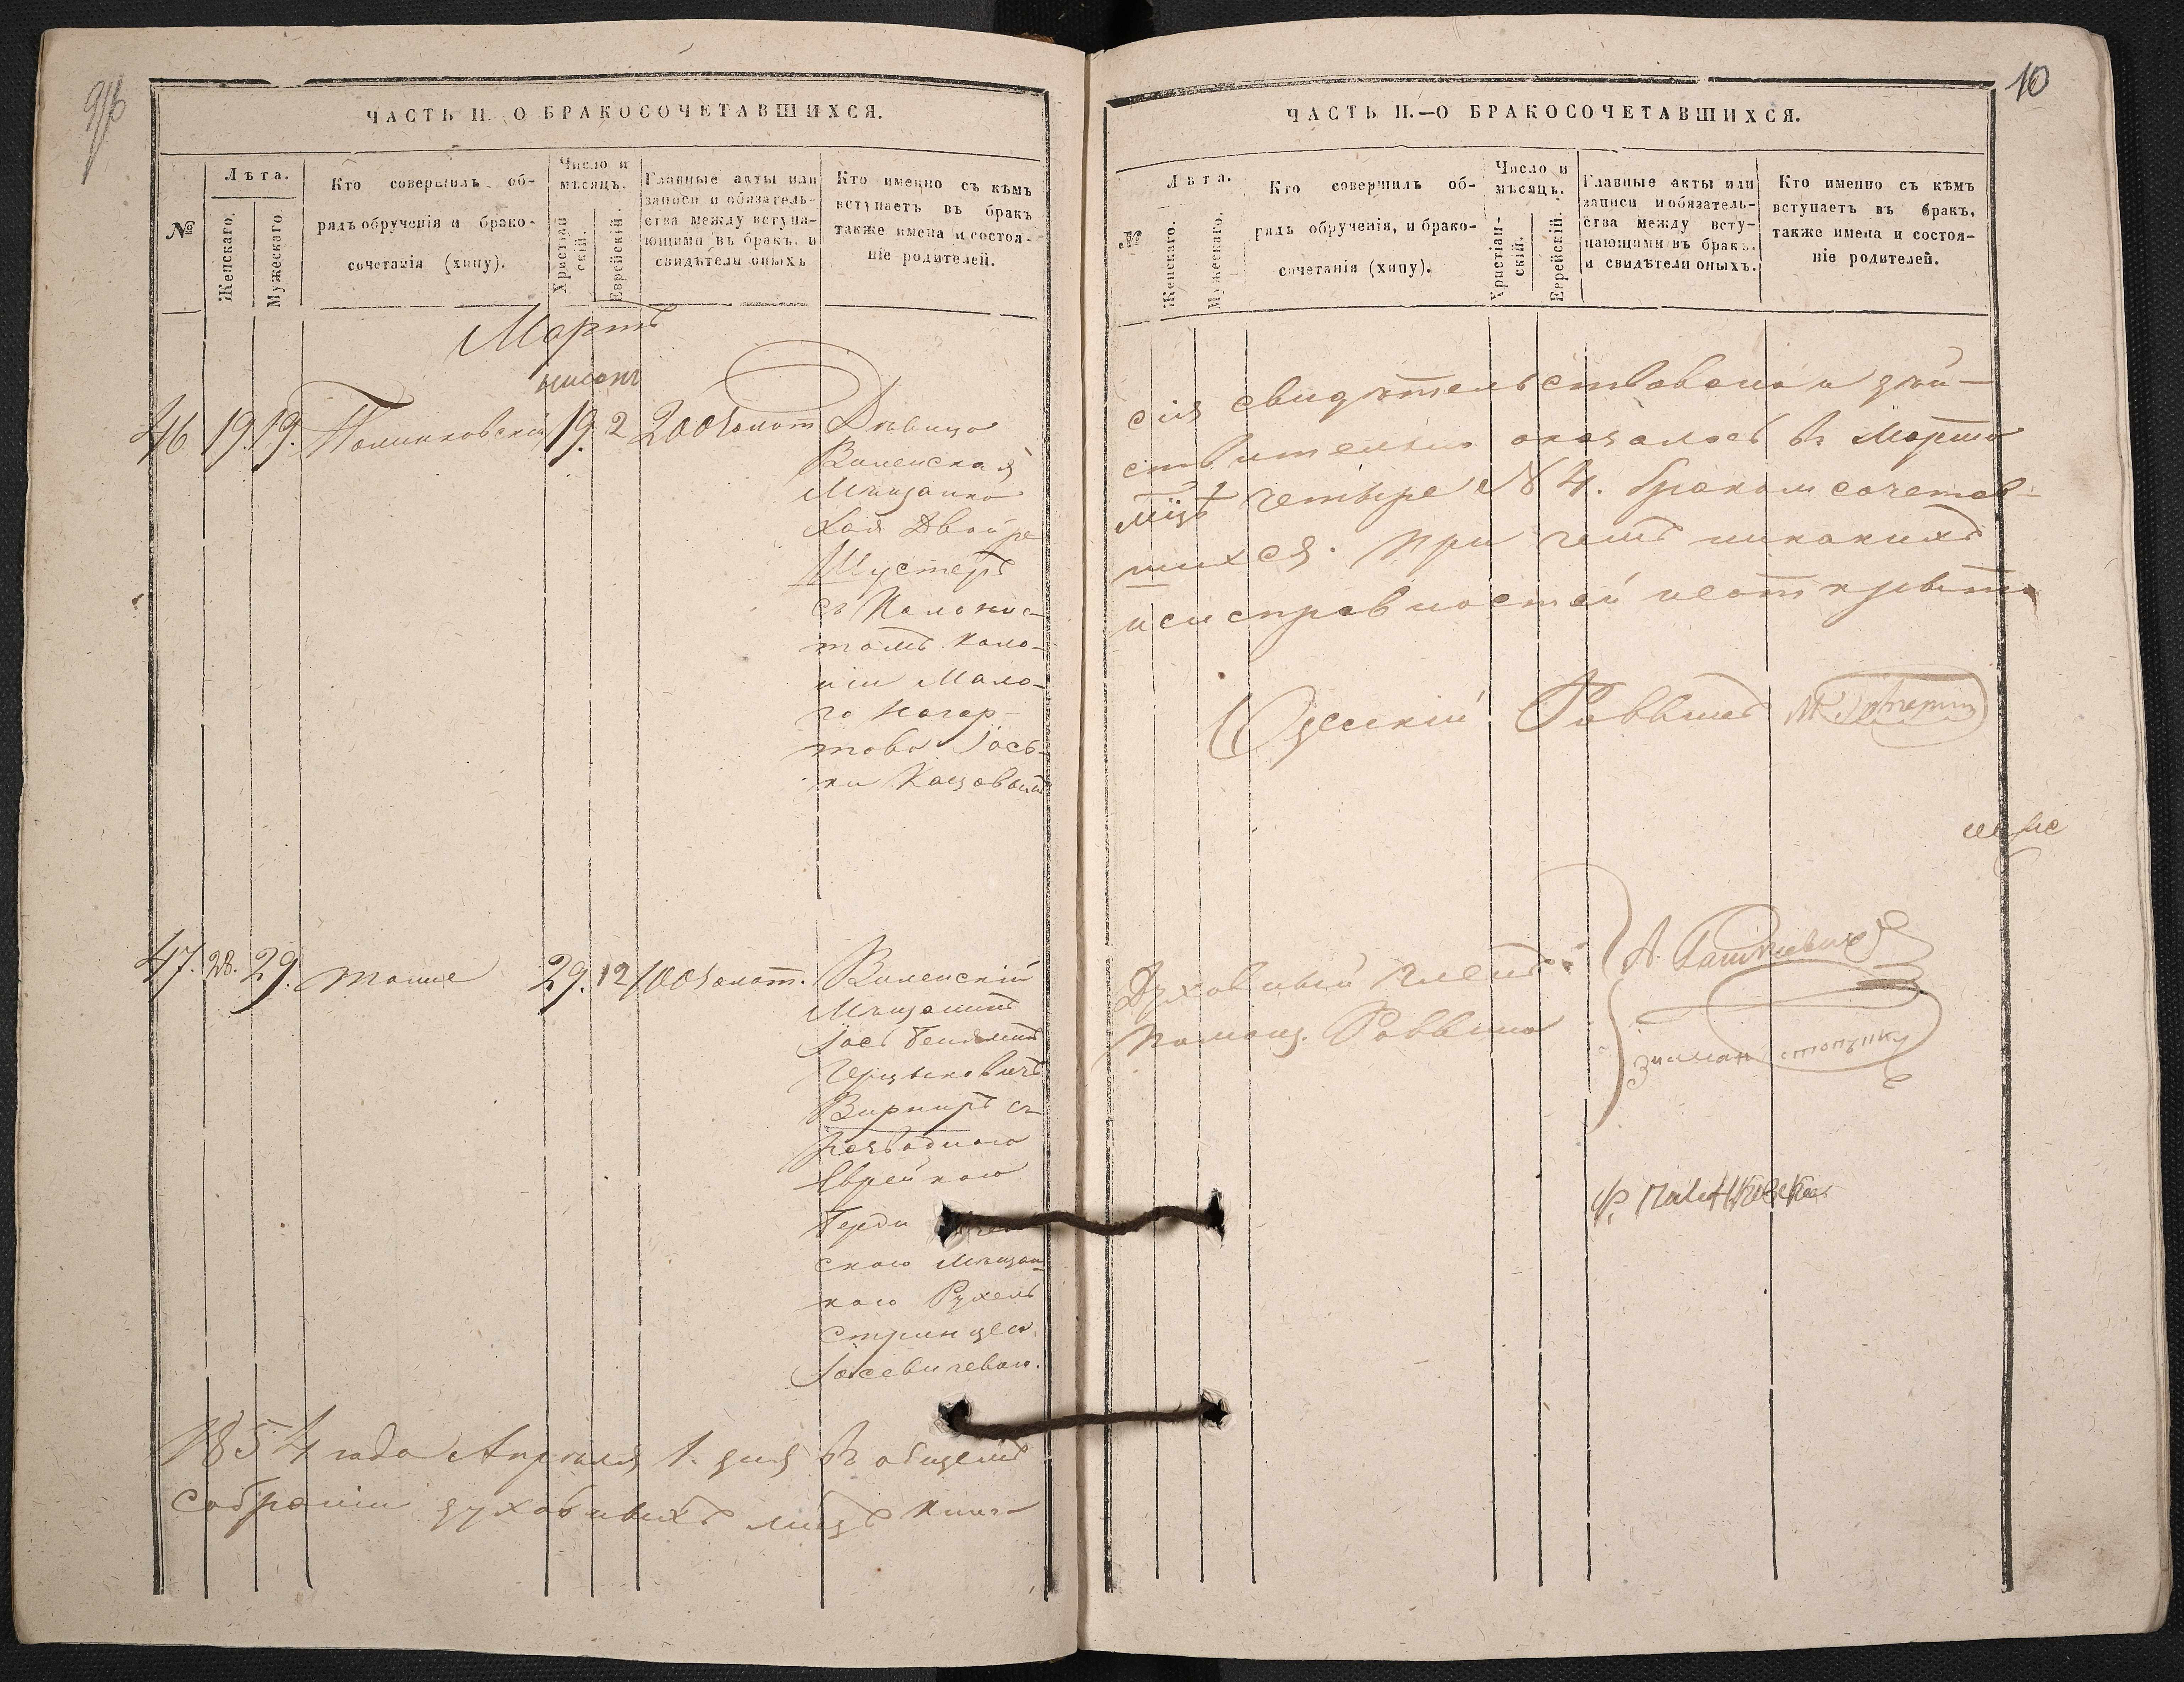 9/16
ЧАСТЬ II. О БРАКОСОЧЕТАВШИХСЯ.
№
Лѣта.
Женскаго.
Мужескаго.
Кто совершилъ об-
рядъ обрученія и брако-
сочетанія (хипу).
Число и
мѣсяцъ.
Христіан
скій.
Еврейскій.
Главные акты или
записи и обязатель-
ства между всту па-
ющими въ бракъ. и
свидѣтели оныхъ
Кто именно съ кѣмъ
вступаетъ въ бракъ
также имена и состоя-
ніе родителей.
Мартъ
нисонъ
46 19. 19. Полинковскій 19. 2 200 золот Дѣвица
Виленская
Мѣщанка
Хая Двойре
Шустеръ
съ Колонис-
томъ Коло-
ніи Мало-
го Нагар-
това Іось-
47. 28. 29. тоже 29. 12 100 золот. Виленскій
Мѣщанинъ
Вирниръ съ
Разводною
Еврейкою
скою Мѣщан-
кою Рухель
Іосевичевою.
1854 года Апрѣля 1. дня въ общемъ
собраніи духовныхъ лицъ книга
10
ЧАСТЬ II.—О БРАКОСОЧЕТАВШИХСЯ.
№
Лѣта.
Женскаго.
Мужескаго.
Кто совершилъ об-
рядъ обрученія, и брако-
сочетанія (хипу).
Число и
мѣсяцъ.
Христіан-
скій.
Еврейскій.
Главные акты или
записи и обязатель-
ства между всту-
пающими въ бракъ.
и свидѣтели оныхъ.
Кто именно съ кѣмъ
вступаетъ въ бракъ,
также имена и состоя-
ніе родителей.
сія свидѣтельствована и дѣй-
ствительно оказалось въ Мартѣ
мцѣ четыре № 4. бракомсочетав-
шихся. При чемъ никакихъ
неисправностей неоткрыто
Одесскій Раввинъ
Духовный членъ:
помощ. Раввина
Зисман
Ф. Полинковскій